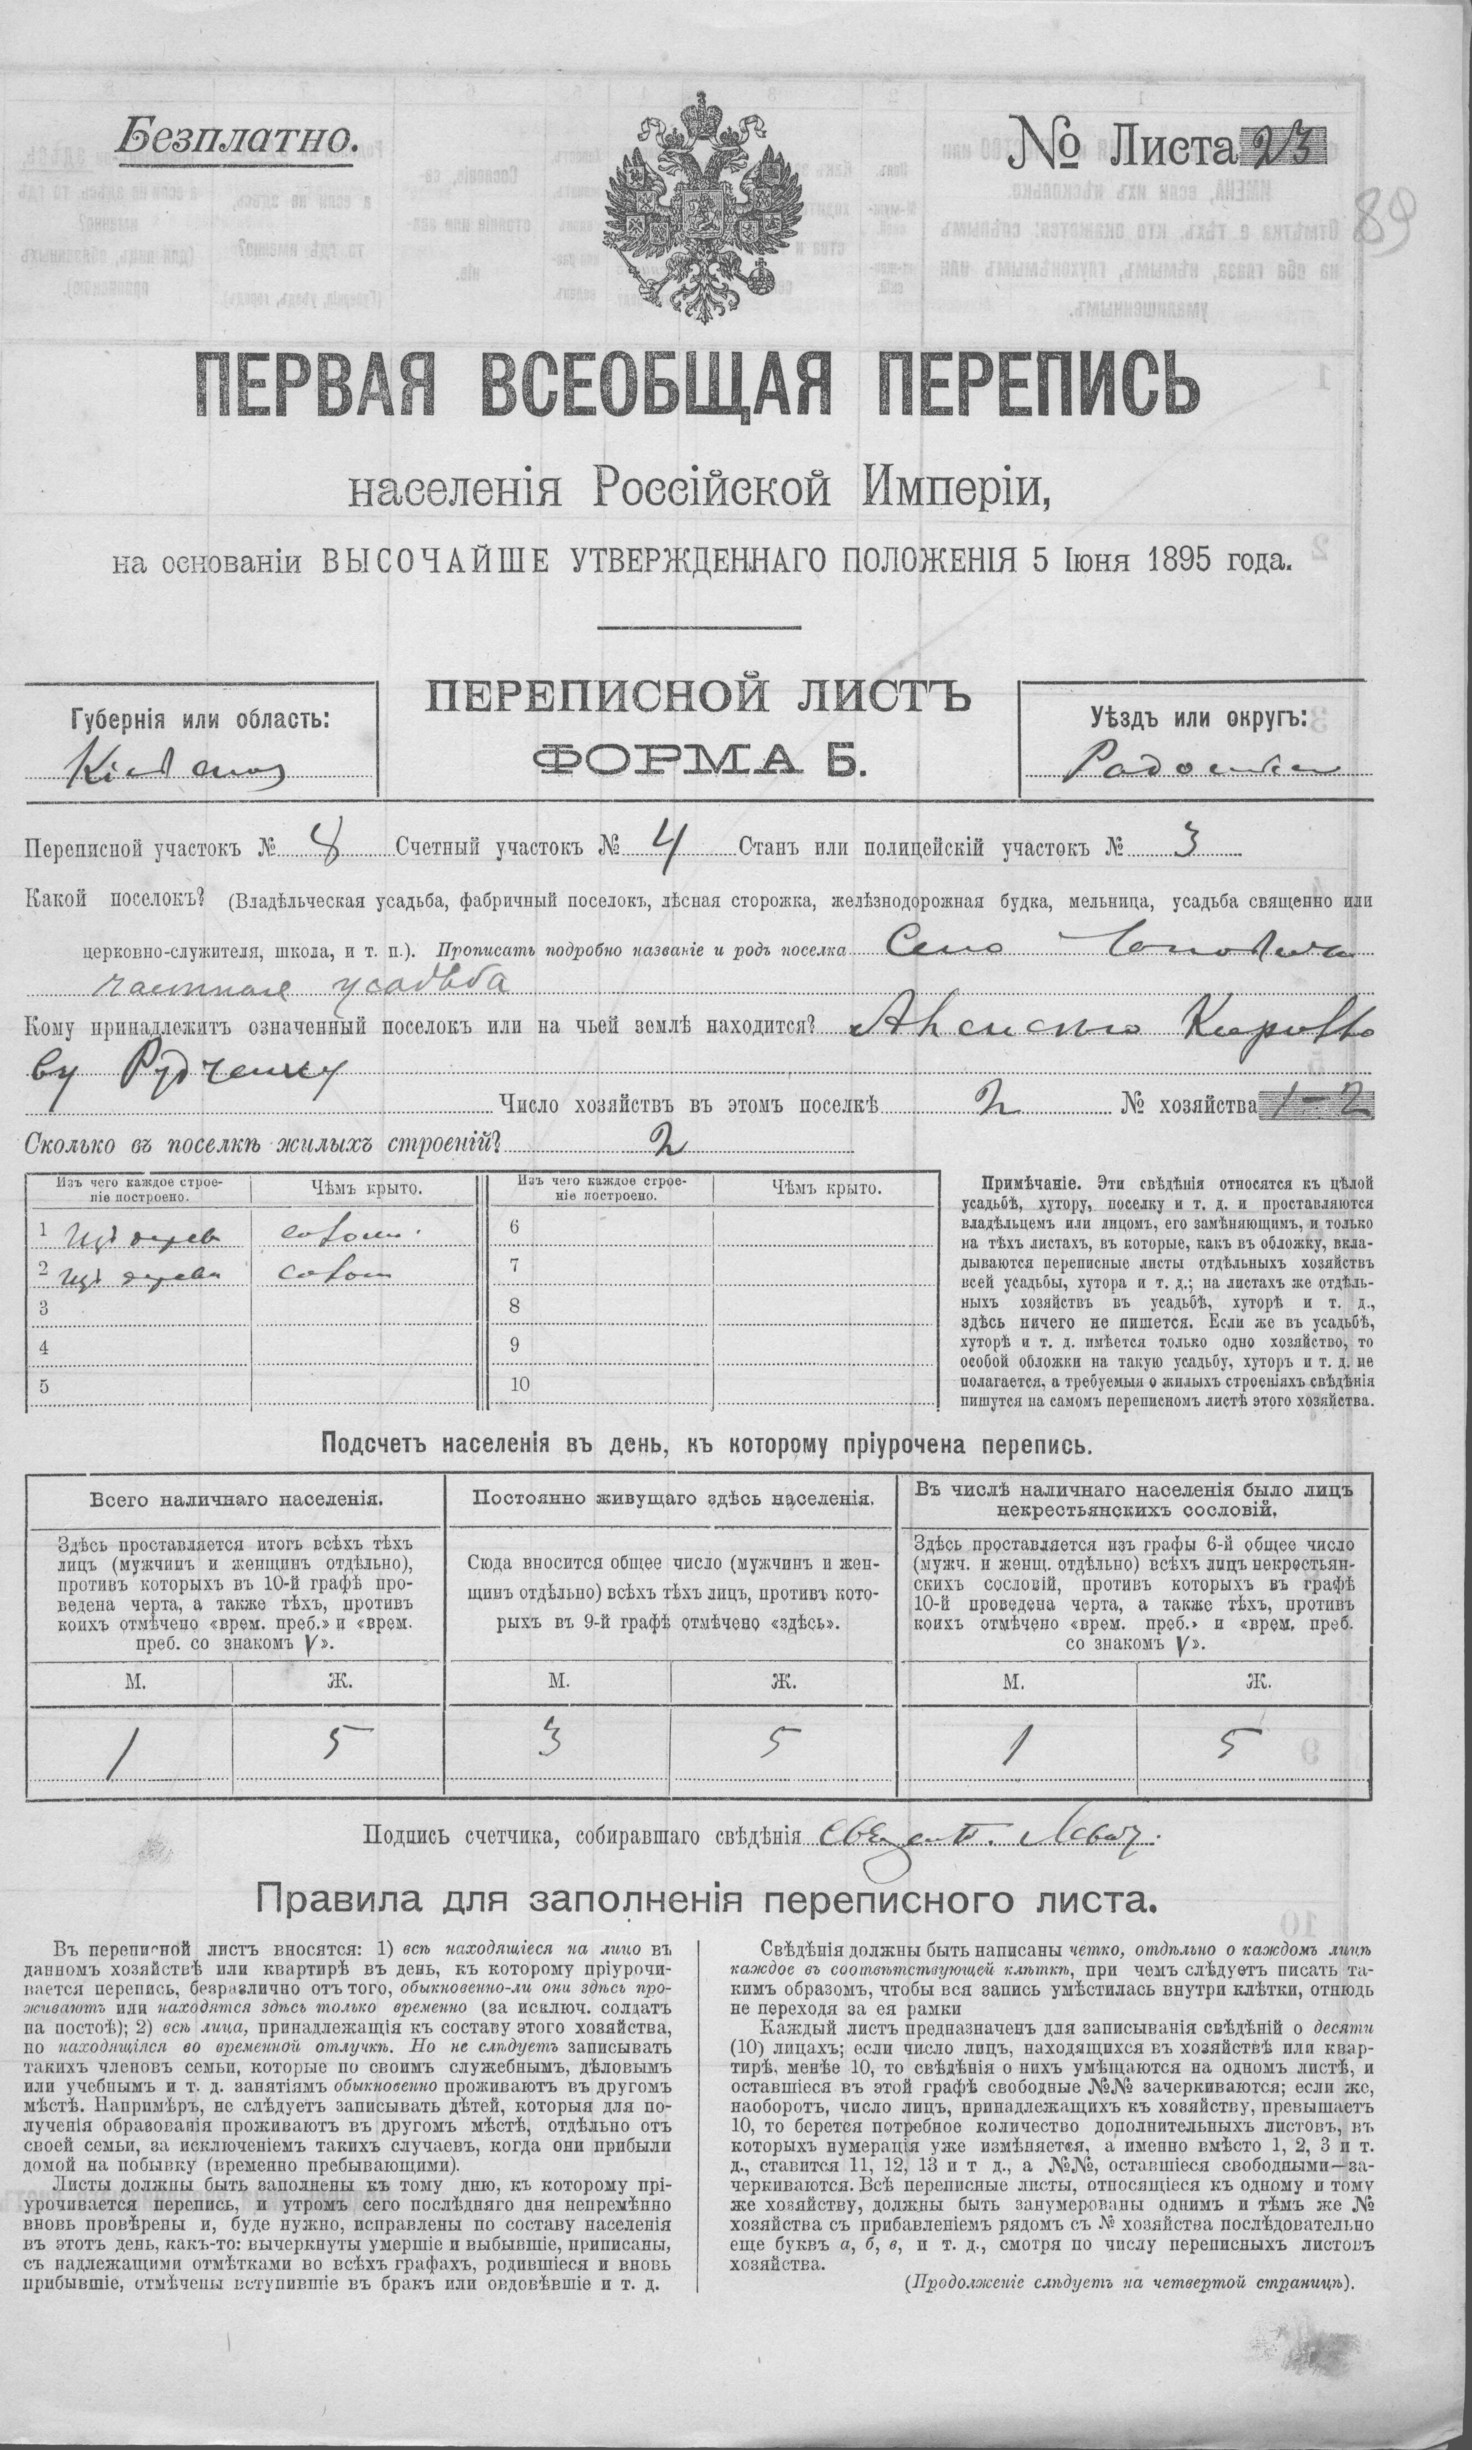 Безплатно.
№ Листа 23
89
ПЕРВАЯ ВСЕОБЩАЯ ПЕРЕПИСЬ
населенія Россійской Имперіи,
на основаніи ВЫСОЧАЙШЕ УТВЕРЖДЕННАГО ПОЛОЖЕНІЯ 5 Іюня 1895 года.
ПЕРЕПИСНОЙ ЛИСТЪ
ФОРМА Б.
Губернія или область:
Кіевская
Уѣздъ или округъ:
Переписной участокъ № 8 Счетный участокъ № 4 Станъ или полицейскій участокъ № 3
Какой поселокъ? (Владѣльческая усадьба, фабричный поселокъ, лѣсная сторожка, желѣзнодорожная будка, мельница, усадьба священно или
церковно-служителя, школа, и т. п.). Прописать подробно названіе и родъ поселка Село
частная усадьба
Кому принадлежитъ означенный поселокъ или на чьей землѣ находится?
ву Рудченку
Число хозяйствъ въ этомъ поселкѣ 2 № хозяйства 1-2
Сколько въ поселкѣ жилыхъ строеній? 2
Изъ чего каждое строе-
ніе построено.
Чѣмъ крыто.
Изъ чего каждое строе-
ніе построено.
Чѣмъ крыто.
1 Изъ дерев солом. 6
2 Изъ дерева солом 7
3 8
4 9
5 10
Примѣчаніе. Эти свѣдѣнія относятся къ цѣлой
усадьбѣ, хутору, поселку и т. д. и проставляются
владѣльцемъ или лицомъ, его замѣняющимъ, и только
на тѣхъ листахъ, въ которые, какъ въ обложку, вкла-
дываются переписные листы отдѣльныхъ хозяйствъ
всей усадьбы, хутора и т. д.; на листахъ же отдѣль-
ныхъ хозяйствъ въ усадьбѣ, хуторѣ и т. д.,
здѣсь ничего не пишется. Если же въ усадьбѣ,
хуторѣ и т. д. имѣется только одно хозяйство, то
особой обложки на такую усадьбу, хуторъ и т. д. не
полагается, а требуемыя о жилыхъ строеніяхъ свѣдѣнія
пишутся на самомъ переписномъ листѣ этого хозяйства.
Подсчетъ населенія въ день, къ которому пріурочена перепись.
Всего наличнаго населенія.
Здѣсь проставляется итогъ всѣхъ тѣхъ
лицъ (мужчинъ и женщинъ отдѣльно),
противъ которыхъ въ 10-й графѣ про-
ведена черта, а также тѣхъ, противъ
коихъ отмѣчено «врем. преб.» и «врем.
преб. со знакомъ V».
Постоянно живущаго здѣсь населенія.
Сюда вносится общее число (мужчинъ и жен-
щинъ отдѣльно) всѣхъ тѣхъ лицъ, противъ кото-
рыхъ въ 9-й графѣ отмѣчено «здѣсь».
Въ числѣ наличнаго населенія было лицъ
некрестьянскихъ сословій.
Здѣсь проставляется изъ графы 6-й общее число
(мужч. и женщ. отдѣльно) всѣхъ лицъ некрестьян-
скихъ сословій, противъ которыхъ въ графѣ
10-й проведена черта, а также тѣхъ, противъ
коихъ отмѣчено «врем. преб.» и «врем. преб.
со знакомъ V».
М. Ж. М. Ж. М. Ж.
1 5 3 5 1 5
Подпись счетчика, собиравшаго свѣдѣнія
Правила для заполненія переписного листа.
Въ переписной листъ вносятся: 1) всѣ находящіеся на лицо въ
данномъ хозяйствѣ или квартирѣ въ день, къ которому пріурочи-
вается перепись, безразлично отъ того, обыкновенно-ли они здѣсь про-
живаютъ или находятся здѣсь только временно (за исключ. солдатъ
на постоѣ); 2) всѣ лица, принадлежащія къ составу этого хозяйства,
но находящіяся во временной отлучкѣ. Но не слѣдуетъ записывать
такихъ членовъ семьи, которые по своимъ служебнымъ, дѣловымъ
или учебнымъ и т. д. занятіямъ обыкновенно проживаютъ въ другомъ
мѣстѣ. Напримѣръ, не слѣдуетъ записывать дѣтей, которыя для по-
лученія образованія проживаютъ въ другомъ мѣстѣ, отдѣльно отъ
своей семьи, за исключеніемъ такихъ случаевъ, когда они прибыли
домой на побывку (временно пребывающими).
Листы должны быть заполнены къ тому дню, къ которому прі-
урочивается перепись, и утромъ сего послѣдняго дня непремѣнно
вновь провѣрены и, буде нужно, исправлены по составу населенія
въ этотъ день, какъ-то: вычеркнуты умершіе и выбывшіе, приписаны,
съ надлежащими отмѣтками во всѣхъ графахъ, родившіеся и вновь
прибывшіе, отмѣчены вступившіе въ бракъ или овдовѣвшіе и т. д.
Свѣдѣнія должны быть написаны четко, отдѣльно о каждомъ лицѣ
каждое въ соотвѣтствующей клѣткѣ, при чемъ слѣдуетъ писать та-
кимъ образомъ, чтобы вся запись умѣстилась внутри клѣтки, отнюдь
не переходя за ея рамки
Каждый листъ предназначенъ для записыванія свѣдѣній о десяти
(10) лицахъ; если число лицъ, находящихся въ хозяйствѣ или квар-
тирѣ, менѣе 10, то свѣдѣнія о нихъ умѣщаются на одномъ листѣ, и
оставшіеся въ этой графѣ свободные №№ зачеркиваются; если же,
наоборотъ, число лицъ, принадлежащихъ къ хозяйству, превышаетъ
10, то берется потребное количество дополнительныхъ листовъ, въ
которыхъ нумерація уже измѣняется, а именно вмѣсто 1, 2, 3 и т.
д., ставится 11, 12, 13 и т д., а №№, оставшіеся свободными—за-
черкиваются. Всѣ переписные листы, относящіеся къ одному и тому
же хозяйству, должны быть занумерованы однимъ и тѣмъ же №
хозяйства съ прибавленіемъ рядомъ съ № хозяйства послѣдовательно
еще буквъ а, б, в, и т. д., смотря по числу переписныхъ листовъ
хозяйства.
(Продолженіе слѣдуетъ на четвертой страницѣ).